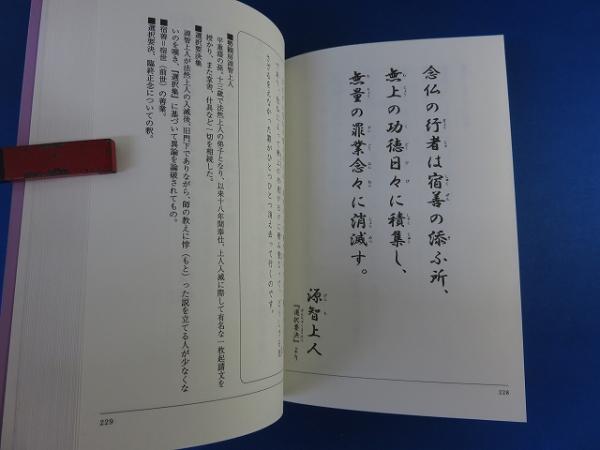 念仏の行者は宿善の添ふ所、
無上の功徳日々に積集し、
無量の罪業念々に消滅す。
源智上人
『選択要決』より
228
さざるをえなかった罪がひとつひとつ消え去って行くのです。
■勢観房源智上人
平重盛の孫。十三歳で法然上人の弟子となり、以来十八年間奉仕。上人入滅に際して有名な一枚起請文を
授かり、また本尊、什具など一切を相続した。
■選択要決集
源智上人が法然上人の入滅後、旧門下でありながら、師の教えに悖（もと）った説を立てる人が少なくな
いのを嘆き、『選択集』に基づいて異論を論破されてもの。
■宿善＝宿世（前世）の善業。
■選択要決、臨終正念についての釈。
229